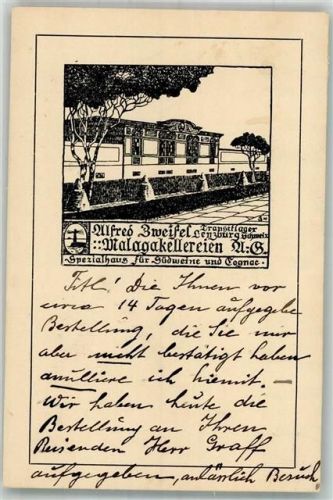 Alfred Zweifel Transitlager
Lenzburg Schweiz
::Malagakellereien A.-G.
Spezialhaus für Südweine und Cognac
Titl! Die Ihnen vor
circa 14 Tagen aufgegebe
Bestellung, die Sie mir
aber nicht bestätigt haben
anulliere ich hiemit. –
Wir haben heute die
Bestellung an Ihren
Reisenden Herr Graff
aufgegeben, anlässlich Besuch